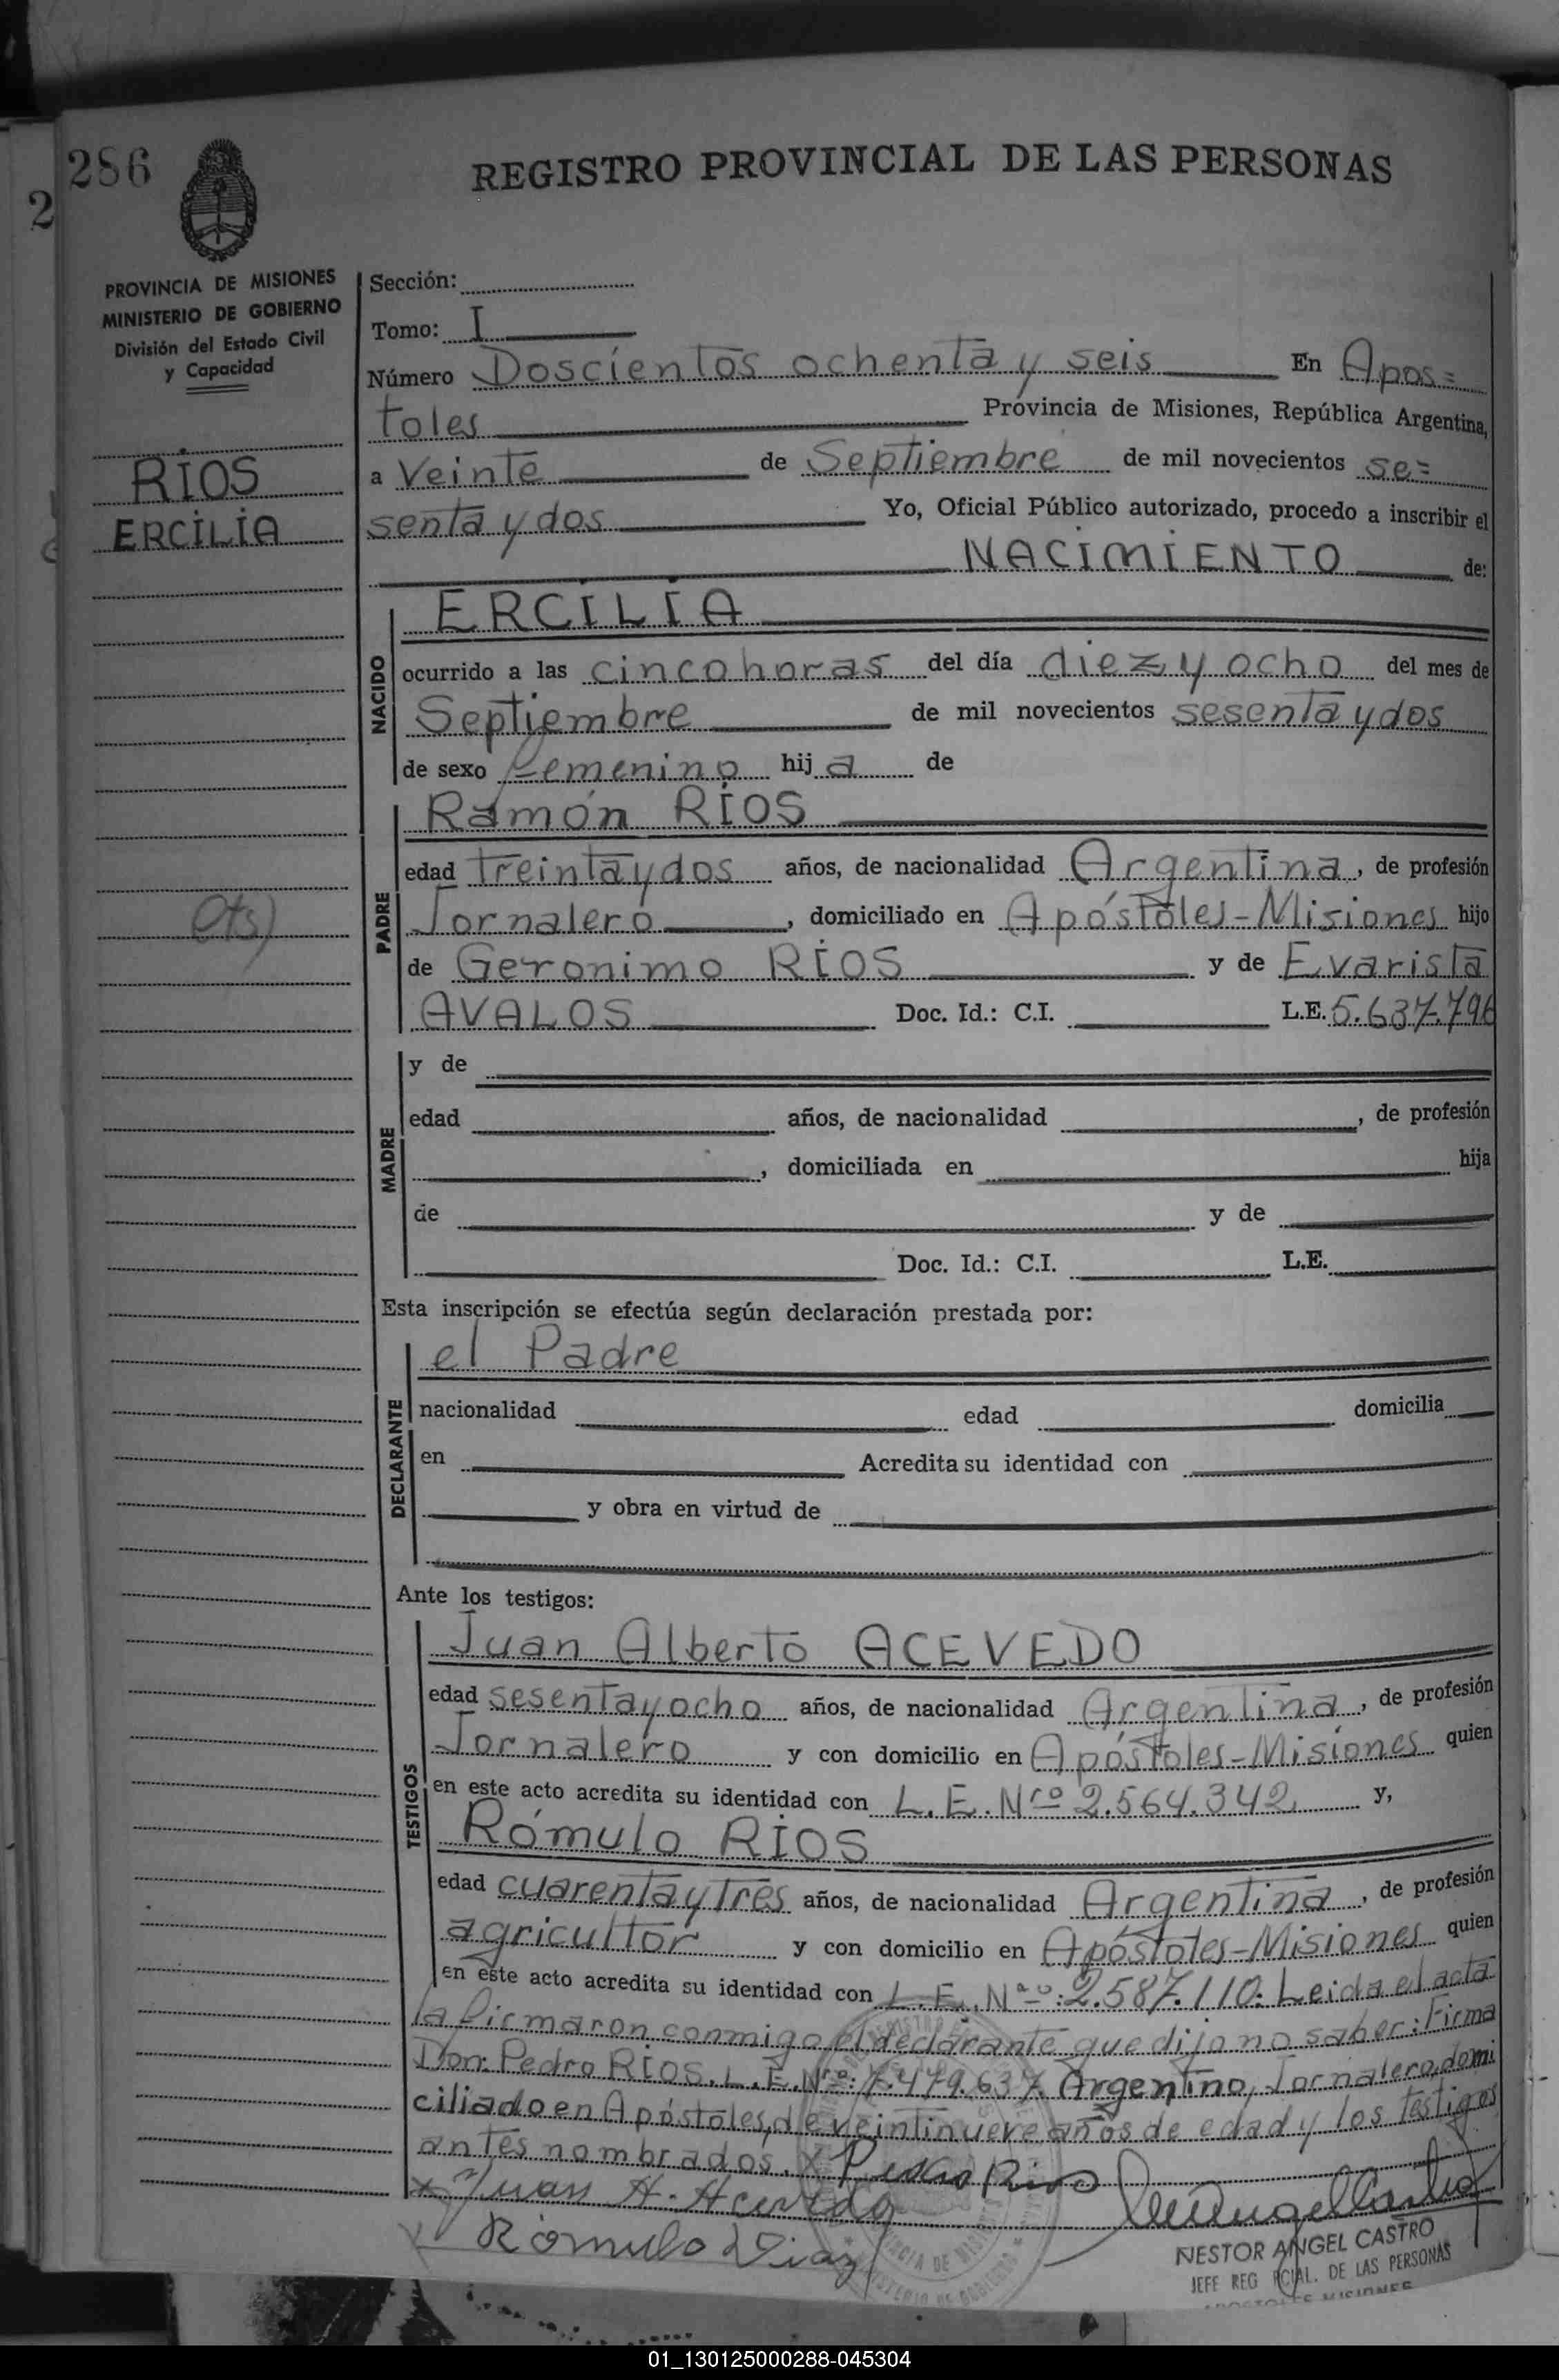 286
2
REGISTRO PROVINCIAL DE LAS PERSONAS
PROVINCIA DE MISIONES
MINISTERIO DE GOBIERNO
División del Estado Civil
y Capacidad
RIOS
ERCILIA
Sección:
Tomo: I
Número Doscientos ochenta y seis En Apos=
toles Provincia de Misiones, República Argentina,
a Veinte de Septiembre de mil novecientos se=
senta y dos Yo, Oficial Público autorizado, procedo a inscribir el
NACIMIENTO de:
NACIDO
ERCILIA
ocurrido a las cinco horas del día diez y ocho del mes de
Septiembre de mil novecientos sesenta y dos
de sexo femenino hija de
PADRE
Ramón RIOS
edad treinta y dos años, de nacionalidad Argentina, de profesión
Jornalero, domiciliado en Apóstoles-Misiones hijo
de Geronimo RIOS y de Evarista
AVALOS Doc. Id.: C.I. L.E. 5.637.796
MADRE
y de
edad años, de nacionalidad , de profesión
, domiciliada en hija
de y de
Doc. Id.: C.I. L.E.
Esta inscripción se efectúa según declaración prestada por:
DECLARANTE
el Padre
nacionalidad edad domicilia
en Acredita su identidad con
y obra en virtud de
Ante los testigos:
TESTIGOS
Juan Alberto ACEVEDO
edad sesenta y ocho años, de nacionalidad Argentina, de profesión
Jornalero y con domicilio en Apóstoles-Misiones quien
en este acto acredita su identidad con L.E. Nro 2.564.342 y,
Rómulo RIOS
edad cuarenta y tres años, de nacionalidad Argentina, de profesión
agricultor y con domicilio en Apóstoles-Misiones quien
en este acto acredita su identidad con L.E. Nro: 2.587.110: Leida el acta
la firmaron conmigo el declarante que dijo no saber: Firma
Don: Pedro RIOS. L.E. Nro: 7.479.637. Argentino, Jornalero, domi
ciliado en Apóstoles, de veintinueve años de edad y los testigos
antes nombrados. x Pedro Rios
x Juan A. Acevedo
x Romulo
NESTOR ANGEL CASTRO
JEFE REG PCIAL. DE LAS PERSONAS
APOSTOLES MISIONES
01_130125000288-045304